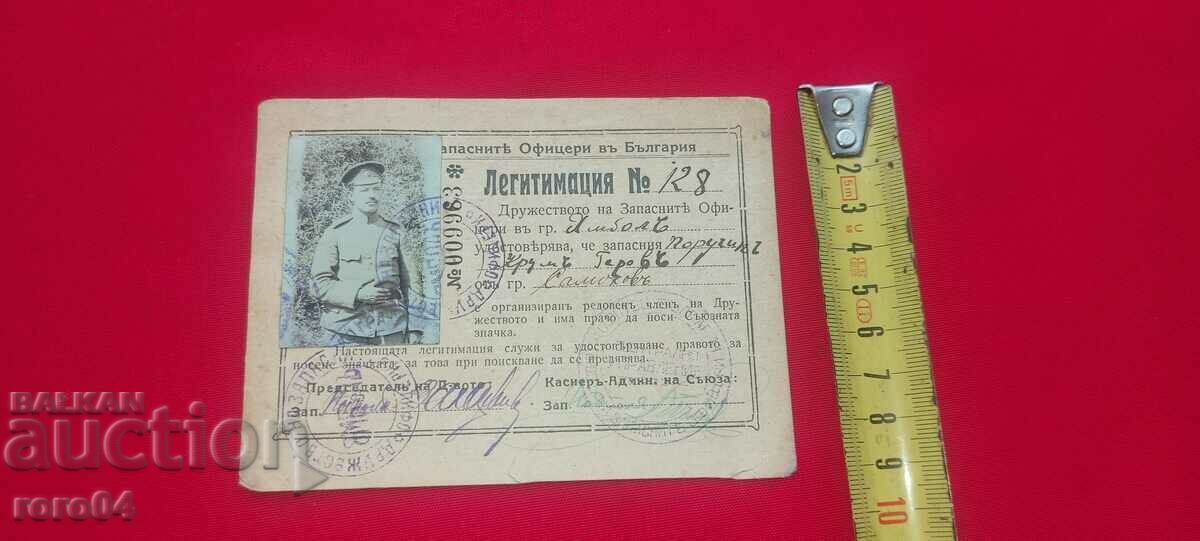 апаснитѣ Офицери въ България
Легитимация № 128
№ 009963 *
Дружеството на Запаснитѣ Офи-
цери въ гр. Ямболъ
удостовѣрява, че запасния Поручикъ
Крумъ Геровъ
отъ гр. Самоковъ
е организиран редовен член на Дру-
жеството и има право да носи Съюзната
значка.
Настоящата легитимация служи за удостовѣряване правото за
носене значката, за това при поискване да се предявява.
Председатель на Д-вото:
Касиеръ-Админ. на Съюза:
Зап.
Зап.
BALKAN
auction
roro04
2
3
4
5
6
7
8
9
10